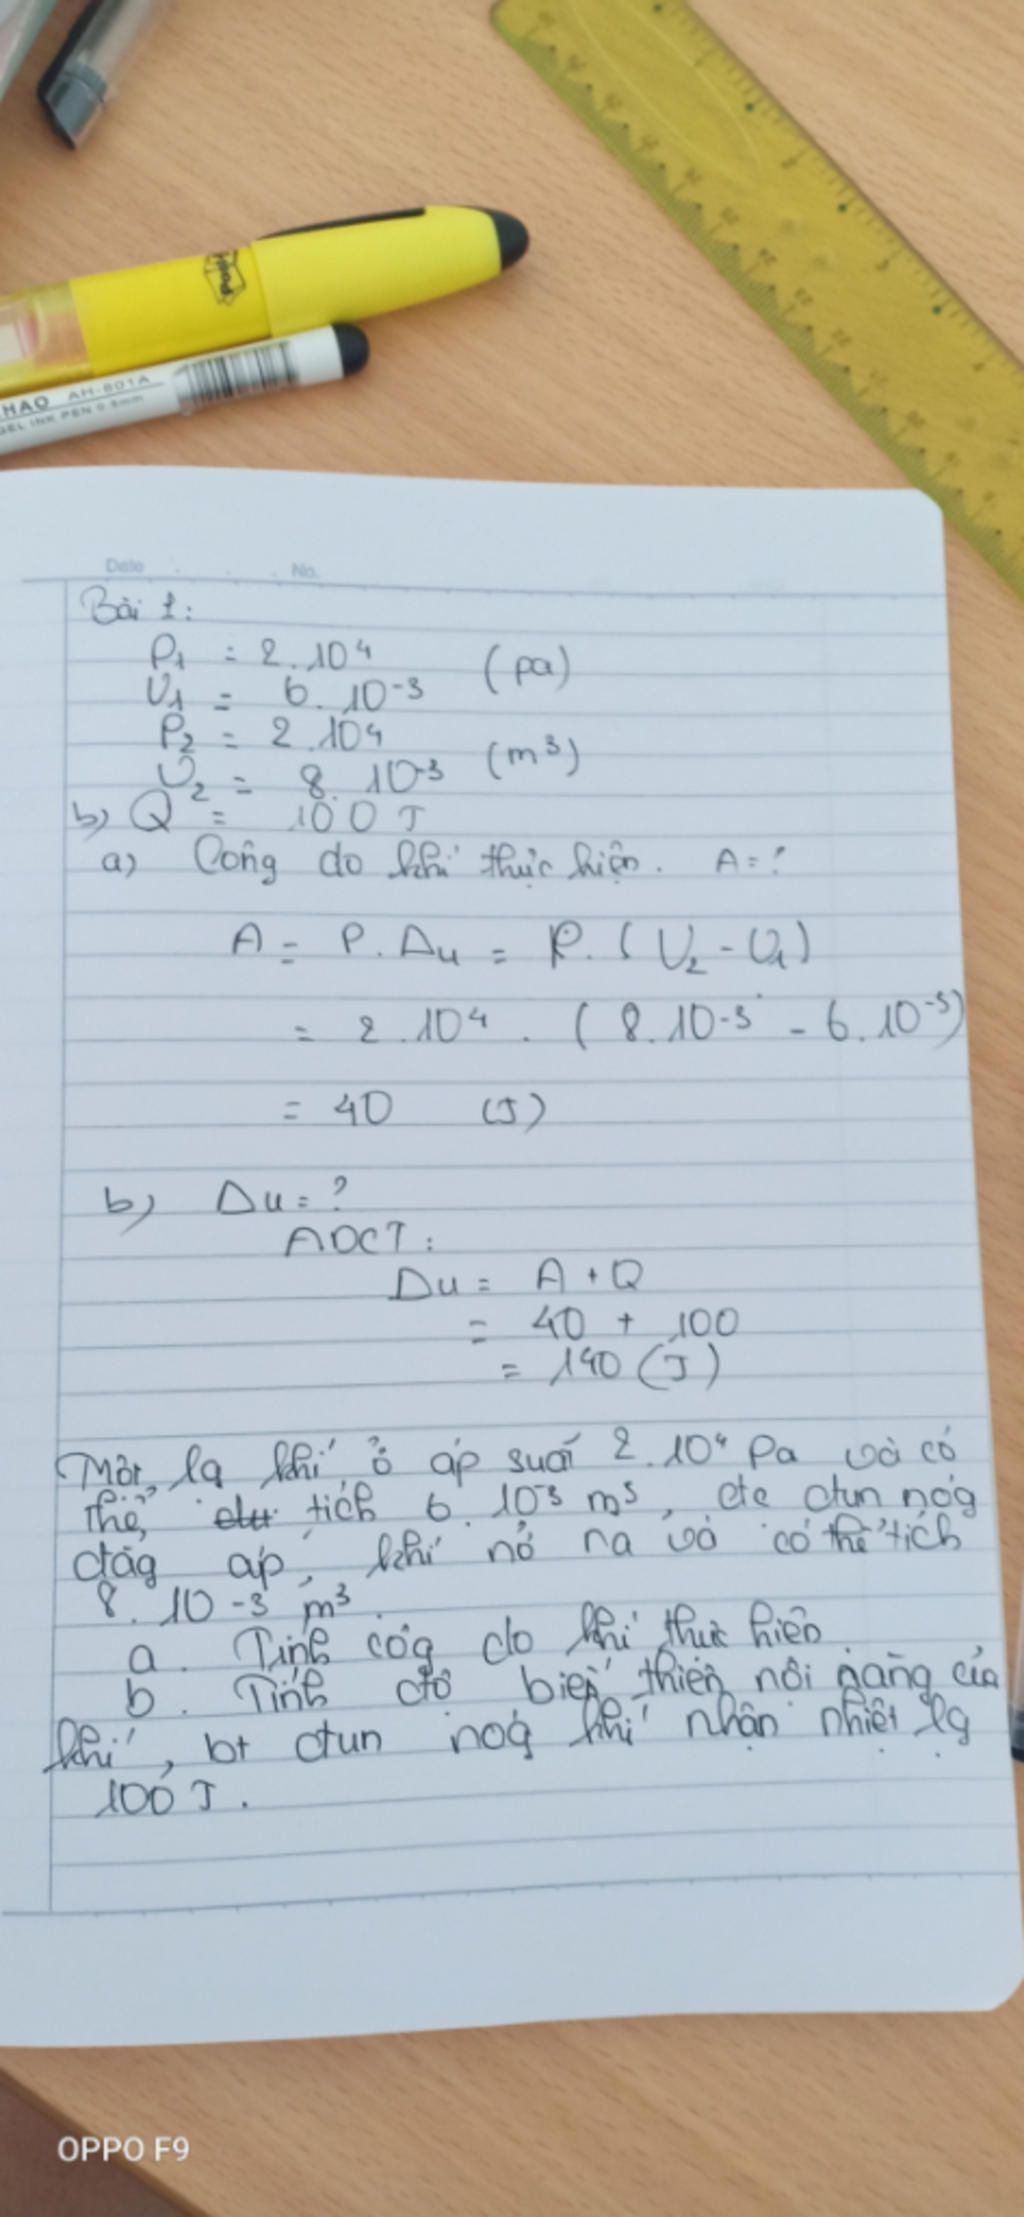 HAO AH-801A
GEL INK PEN 0.5mm
Date No.
Bài 1:
P1 = 2.10^4 (pa)
V1 = 6.10^-3
P2 = 2.10^4
V2 = 8.10^-3 (m^3)
b) Q = 100 J
a) Công do khí thực hiện. A = ?
A = P.Δu = P.(V2 - V1)
= 2.10^4 . (8.10^-3 - 6.10^-3)
= 40 (J)
b) Δu = ?
ADCT:
Δu = A + Q
= 40 + 100
= 140 (J)
Một lg khí ở áp suất 2.10^4 Pa và có
thể tích 6.10^-3 m^3, đc đun nóg
đẳg áp, khí nở ra và có thể tích
8.10^-3 m^3
a. Tính côg do khí thực hiện
b. Tính độ biến thiên nội năng của
khí, bt đun nóg khí nhận nhiệt lg
100 J.
OPPO F9